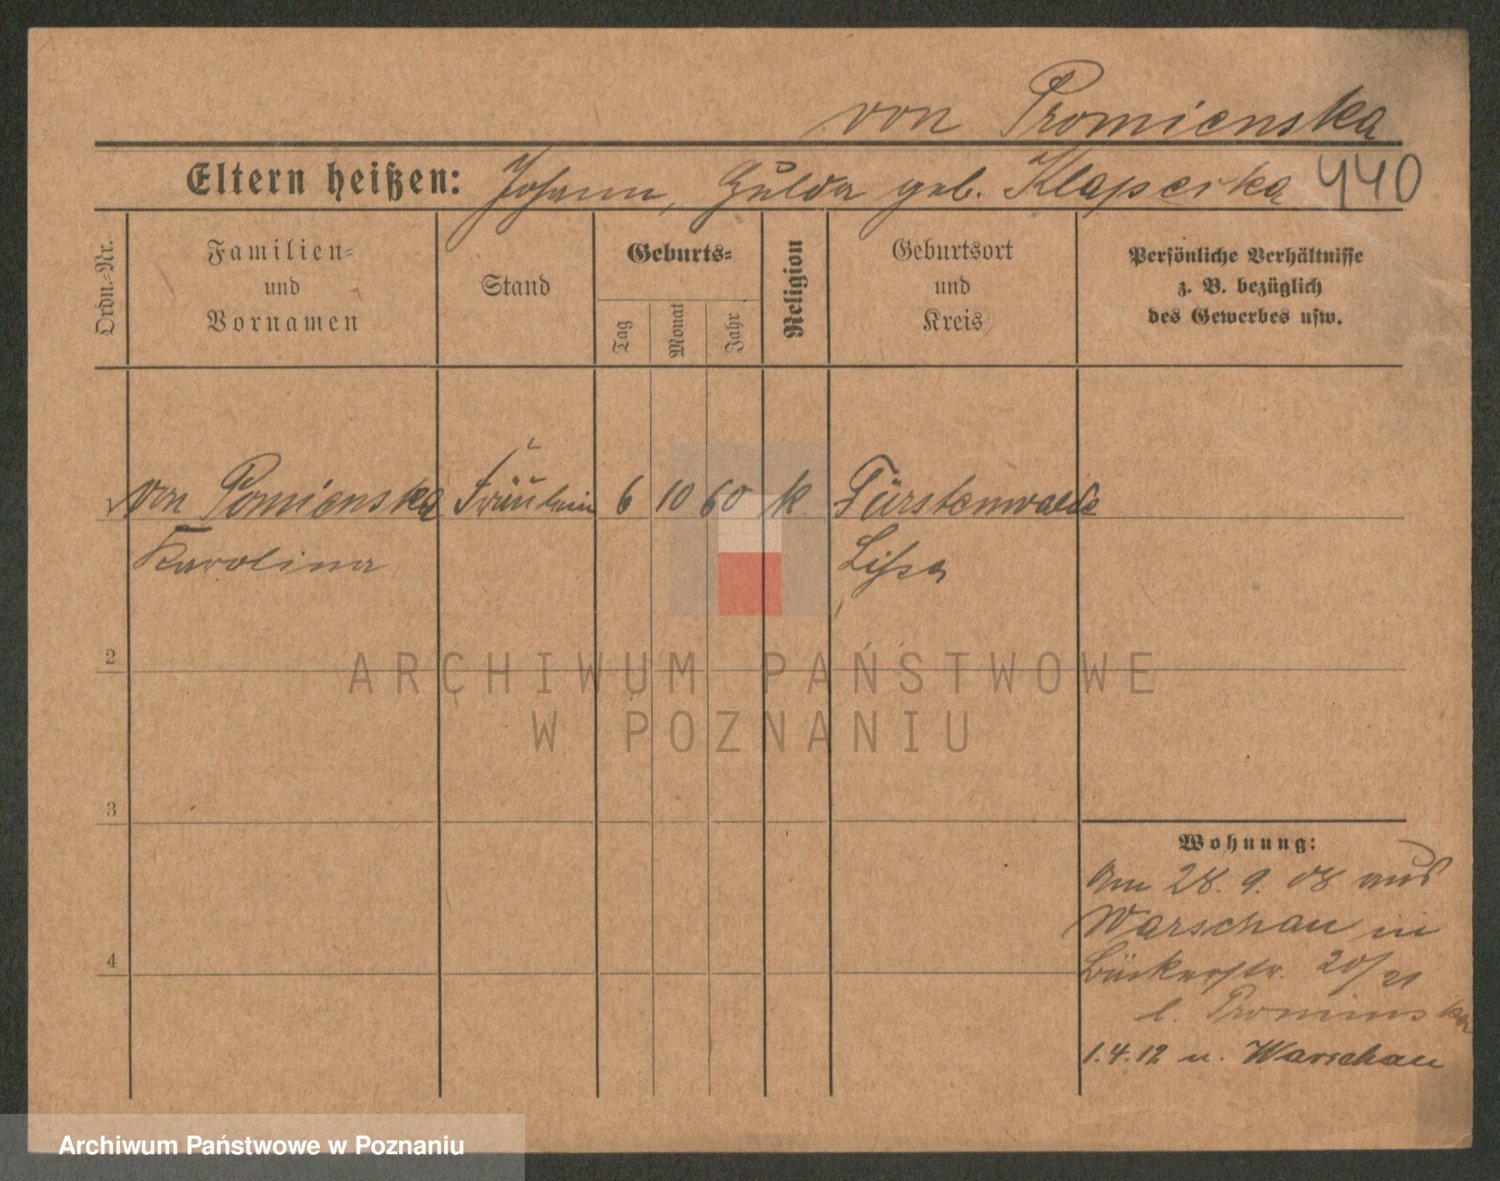 von Promienska
Eltern heißen: Johann, Hulda geb. Klaperska 440
Ordn.-Nr.
Familien-
und
Vornamen
Stand
Geburts-
Tag
Monat
Jahr
Religion
Geburtsort
und
Kreis
Persönliche Verhältnisse
z. B. bezüglich
des Gewerbes usw.
von Pomienska Fräulein 6 10 60 k. Fürstenwalde
Karolina Lissa
2
ARCHIWUM PAŃSTWOWE
W POZNANIU
3
Wohnung:
Am 28. 9. 08 aus
Warschau in
4
Bäckerstr. 20/21
b. Promienska
1.4.12 n. Warschau
Archiwum Państwowe w Poznaniu